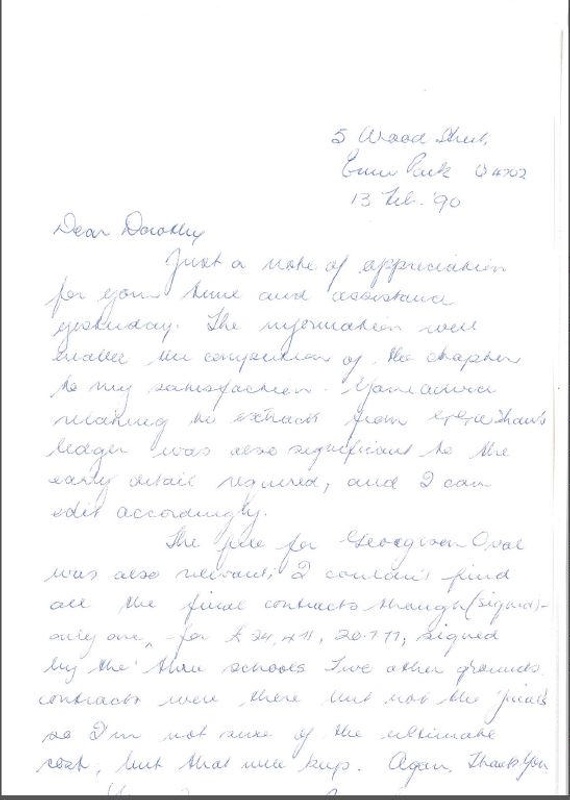 5 Wood Street,
Emu Park Q 4702
13 Feb. '90
Dear Dorothy
Just a note of appreciation
for your time and assistance
yesterday. The information will
enable the completion of the chapter
to my satisfaction. Your advice
relating to extracts from
ledger was also significant to the
early detail required, and I can
edit accordingly.
The file for Georgeson Oval
was also relevant; I couldn't find
all the final contracts though (signed) -
only one, - for 20.1.77, signed
by the three schools. Two other grounds
contracts were there but not the finals
so I'm not sure of the ultimate
cost, but that will keep. Again, Thank You